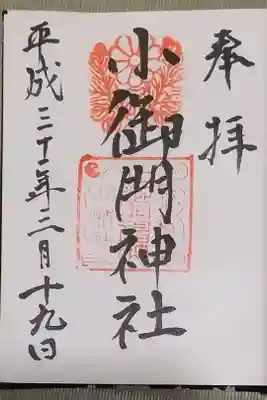 奉拝
小御門神社
平成三十一年二月十九日